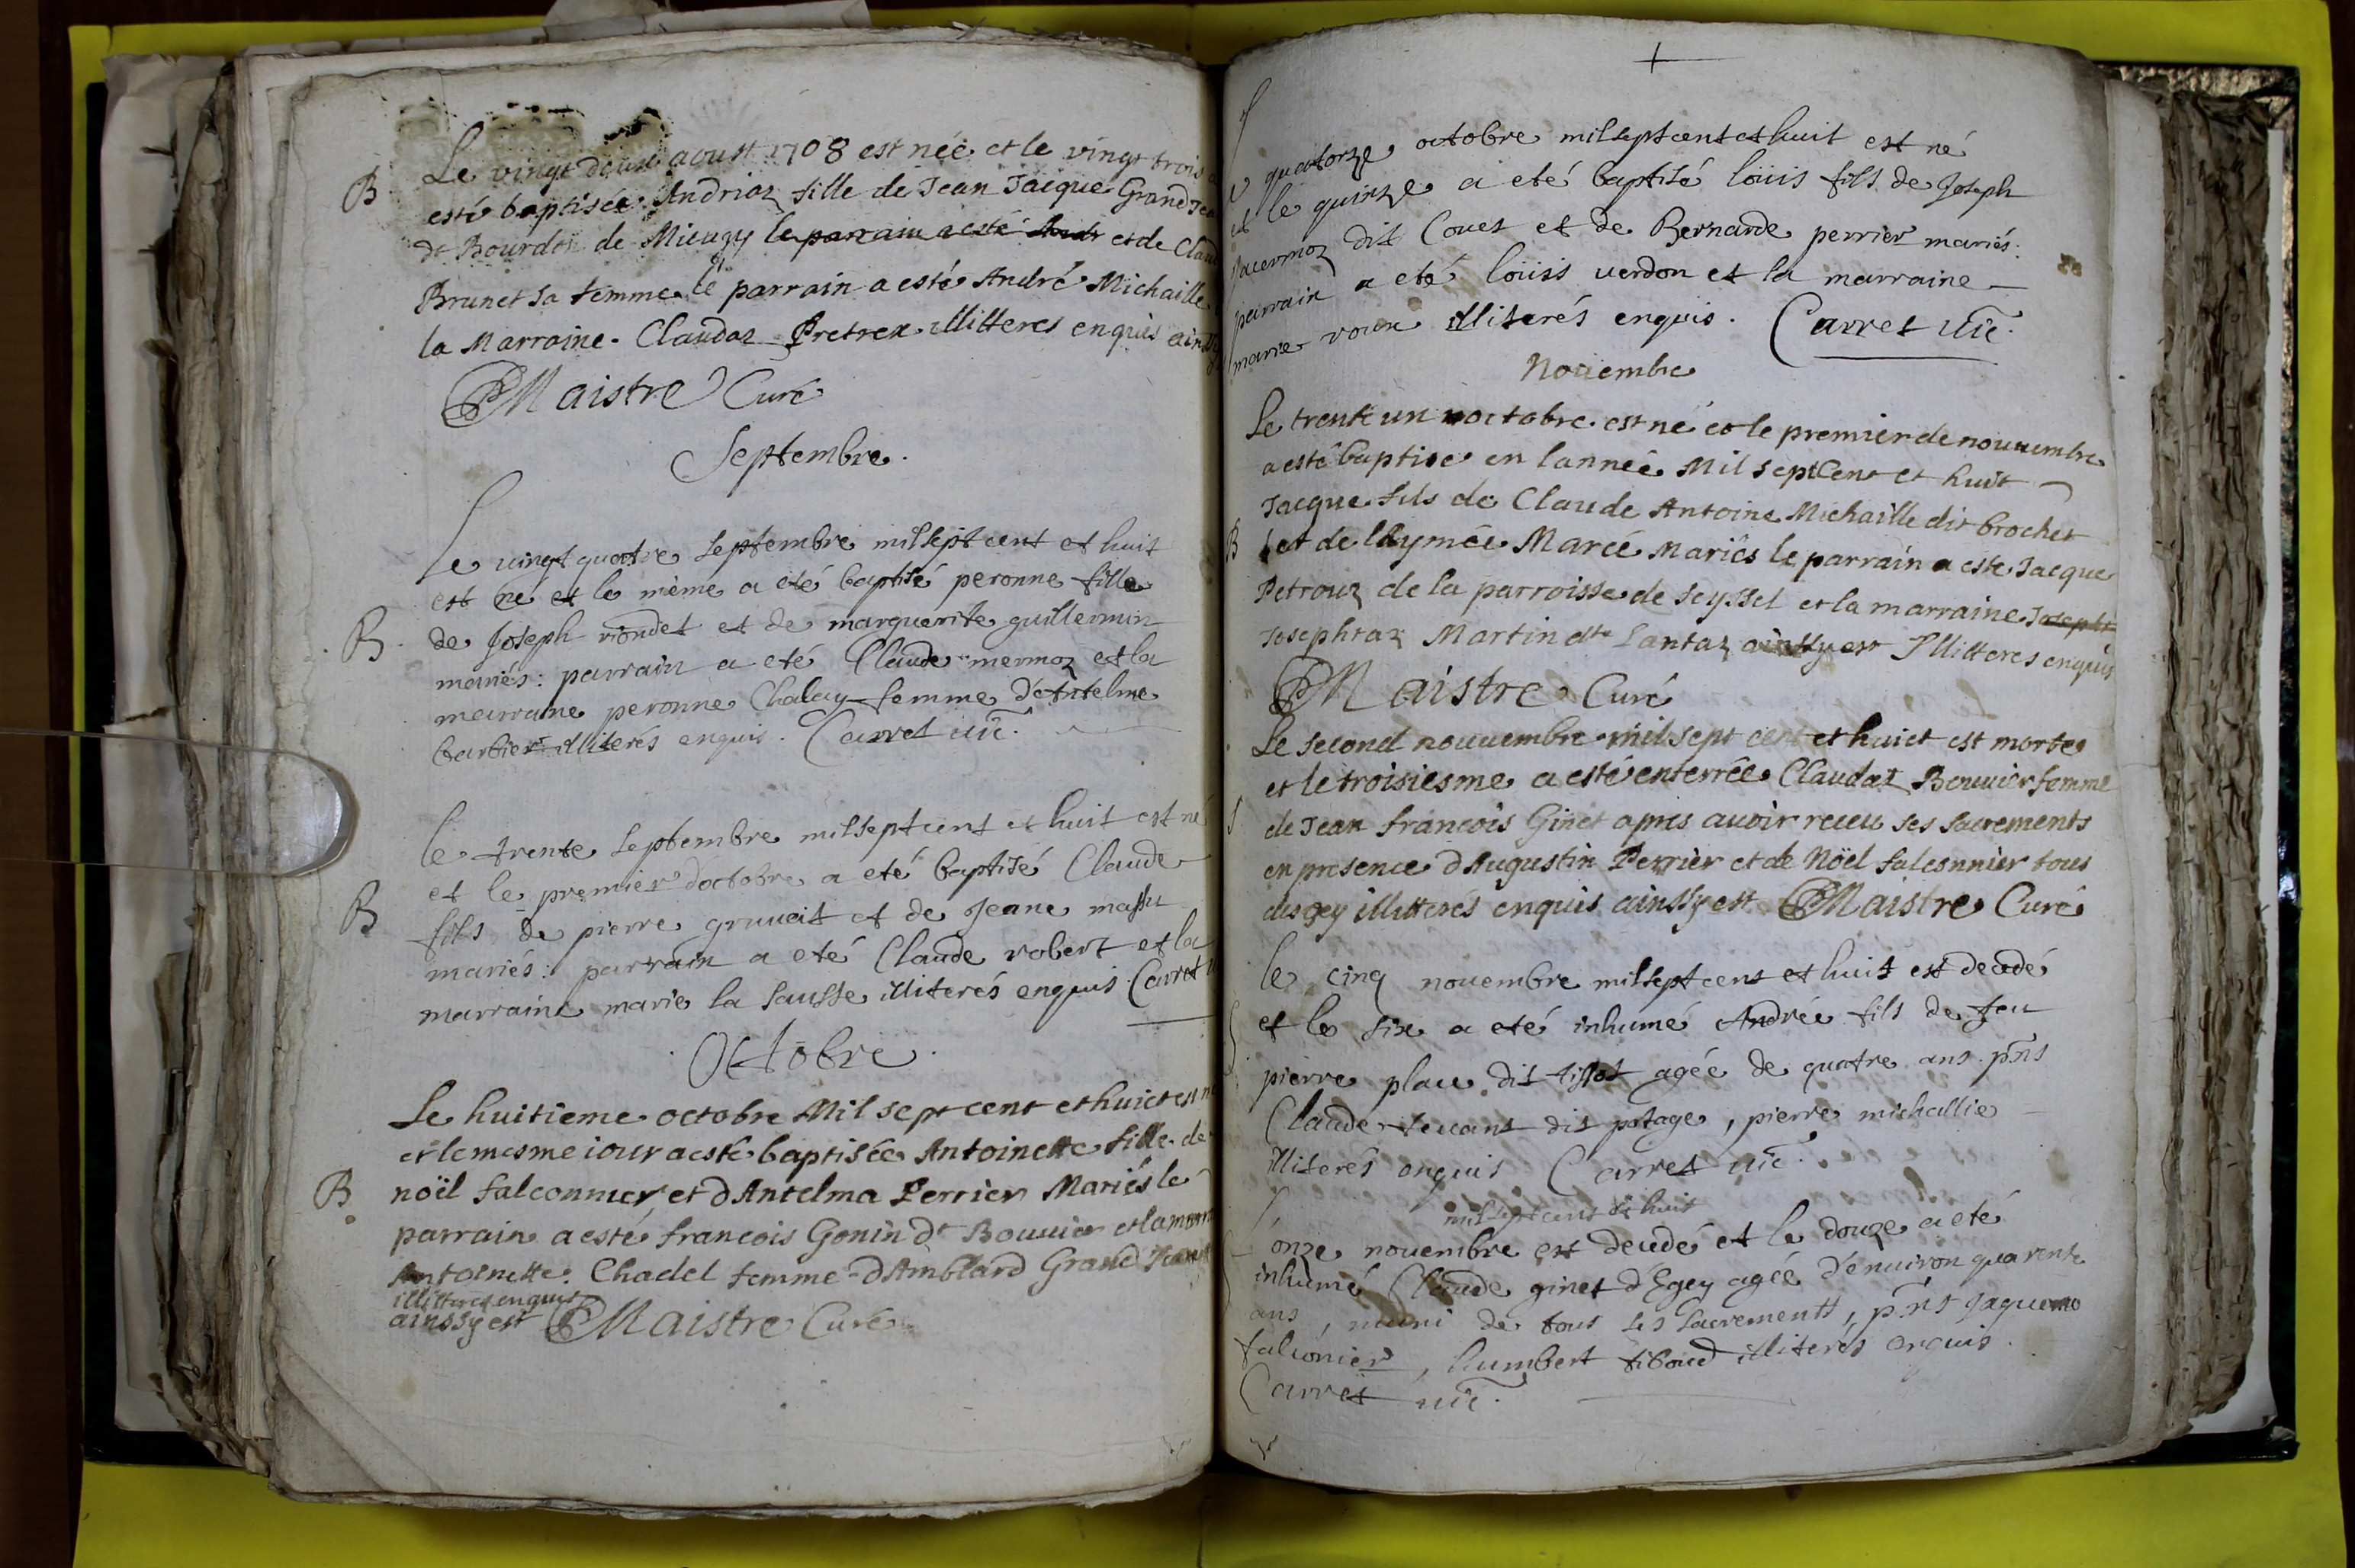 B
Le vingt deux aoust 1708 est née et le vingt trois
esté baptisée Andriaz fille de Jean Jacque Grand Jea
dt Bourdos de Mieugy le parrain a esté Andr et de Claud
Brunet sa femme le parrain a esté André Michaille
la Marraine Claudaz Pretrex illitteres enquis ainssy
PMaistre Curé
Septembre.
Le vingt quatre septembre mil sept cent et huit
est né et le même a eté baptisé peronne fille
B
de Joseph riondet et de marguerite guillermin
mariés: parrain a eté Claude mermoz et la
marraine peronne Chalay femme d'Antelme
barbier illiterés enquis. Carret uic.
le trente septembre mil sept cent et huit est né
et le premier d'octobre a eté baptisé Claude
B
fils de pierre gruuait et de Jeane massu
mariés: parrain a eté Claude robert et la
marraine marie la sausse illiterés enquis. Carret
Octobre.
Le huitieme octobre Mil sept cent et huict est n
et le mesme iour a esté baptisée Antoinette fille de
B
noël falconnier et d Antelma Perrier Mariés le
parrain a esté francois Gonin dt Bouuier et la marr
Antoinette Chadel femme d'Amblard Grand Jean
illitteres enquis
ainssy est PMaistre Curé
+
Le quatorze octobre mil sept cent et huit est né
et le quinze a eté baptisé loüis fils de Joseph
Jacermoz dit Couet et de Bernarde perrier mariés:
parrain a eté loüis uerdon et la marraine
marie roux illiterés enquis. Carret uic.
Nouembre
Le trente un octobre est né et le premier de nouuembre
a esté baptise en l'année Mil sept Cent et huit
Jacque fils de Claude Antoine Michaille dit brochet
B
et de l Aymée Marcé Mariés le parrain a esté Jacque
Petrouz de la parroisse de Seyssel et la marraine Joseph
Josephtaz Martin dt Lantaz ainssy est Illitteres enquis
PMaistre Curé
Le second nouuembre mil sept cent et huict est morte
et le troisiesme a esté enterrée Claudaz Bouuier femme
S
de Jean francois Ginet apres auoir receu ses sacrements
en presence d Augustin Perrier et de Noël falconnier tous
degey illitterés enquis ainssy est PMaistre Curé
le cinq nouembre mil sept cent et huit est decedé
et le six a eté inhumé Andrée fils de feu
pierre place dit tissot agée de quatre ans. pnts
Claude teuant dit potage, pierre michallie
illiterés enquis Carret uic.
mil sept cent et huit
L'onze nouembre est decedé et le douze a eté
inhumé Claude ginet d'Egey agée d'enuiron quarente
ans, muni de tous les sacrements, pnts Jaquemo
falconier, humbert tibaud illiterés enquis.
Carret uic.